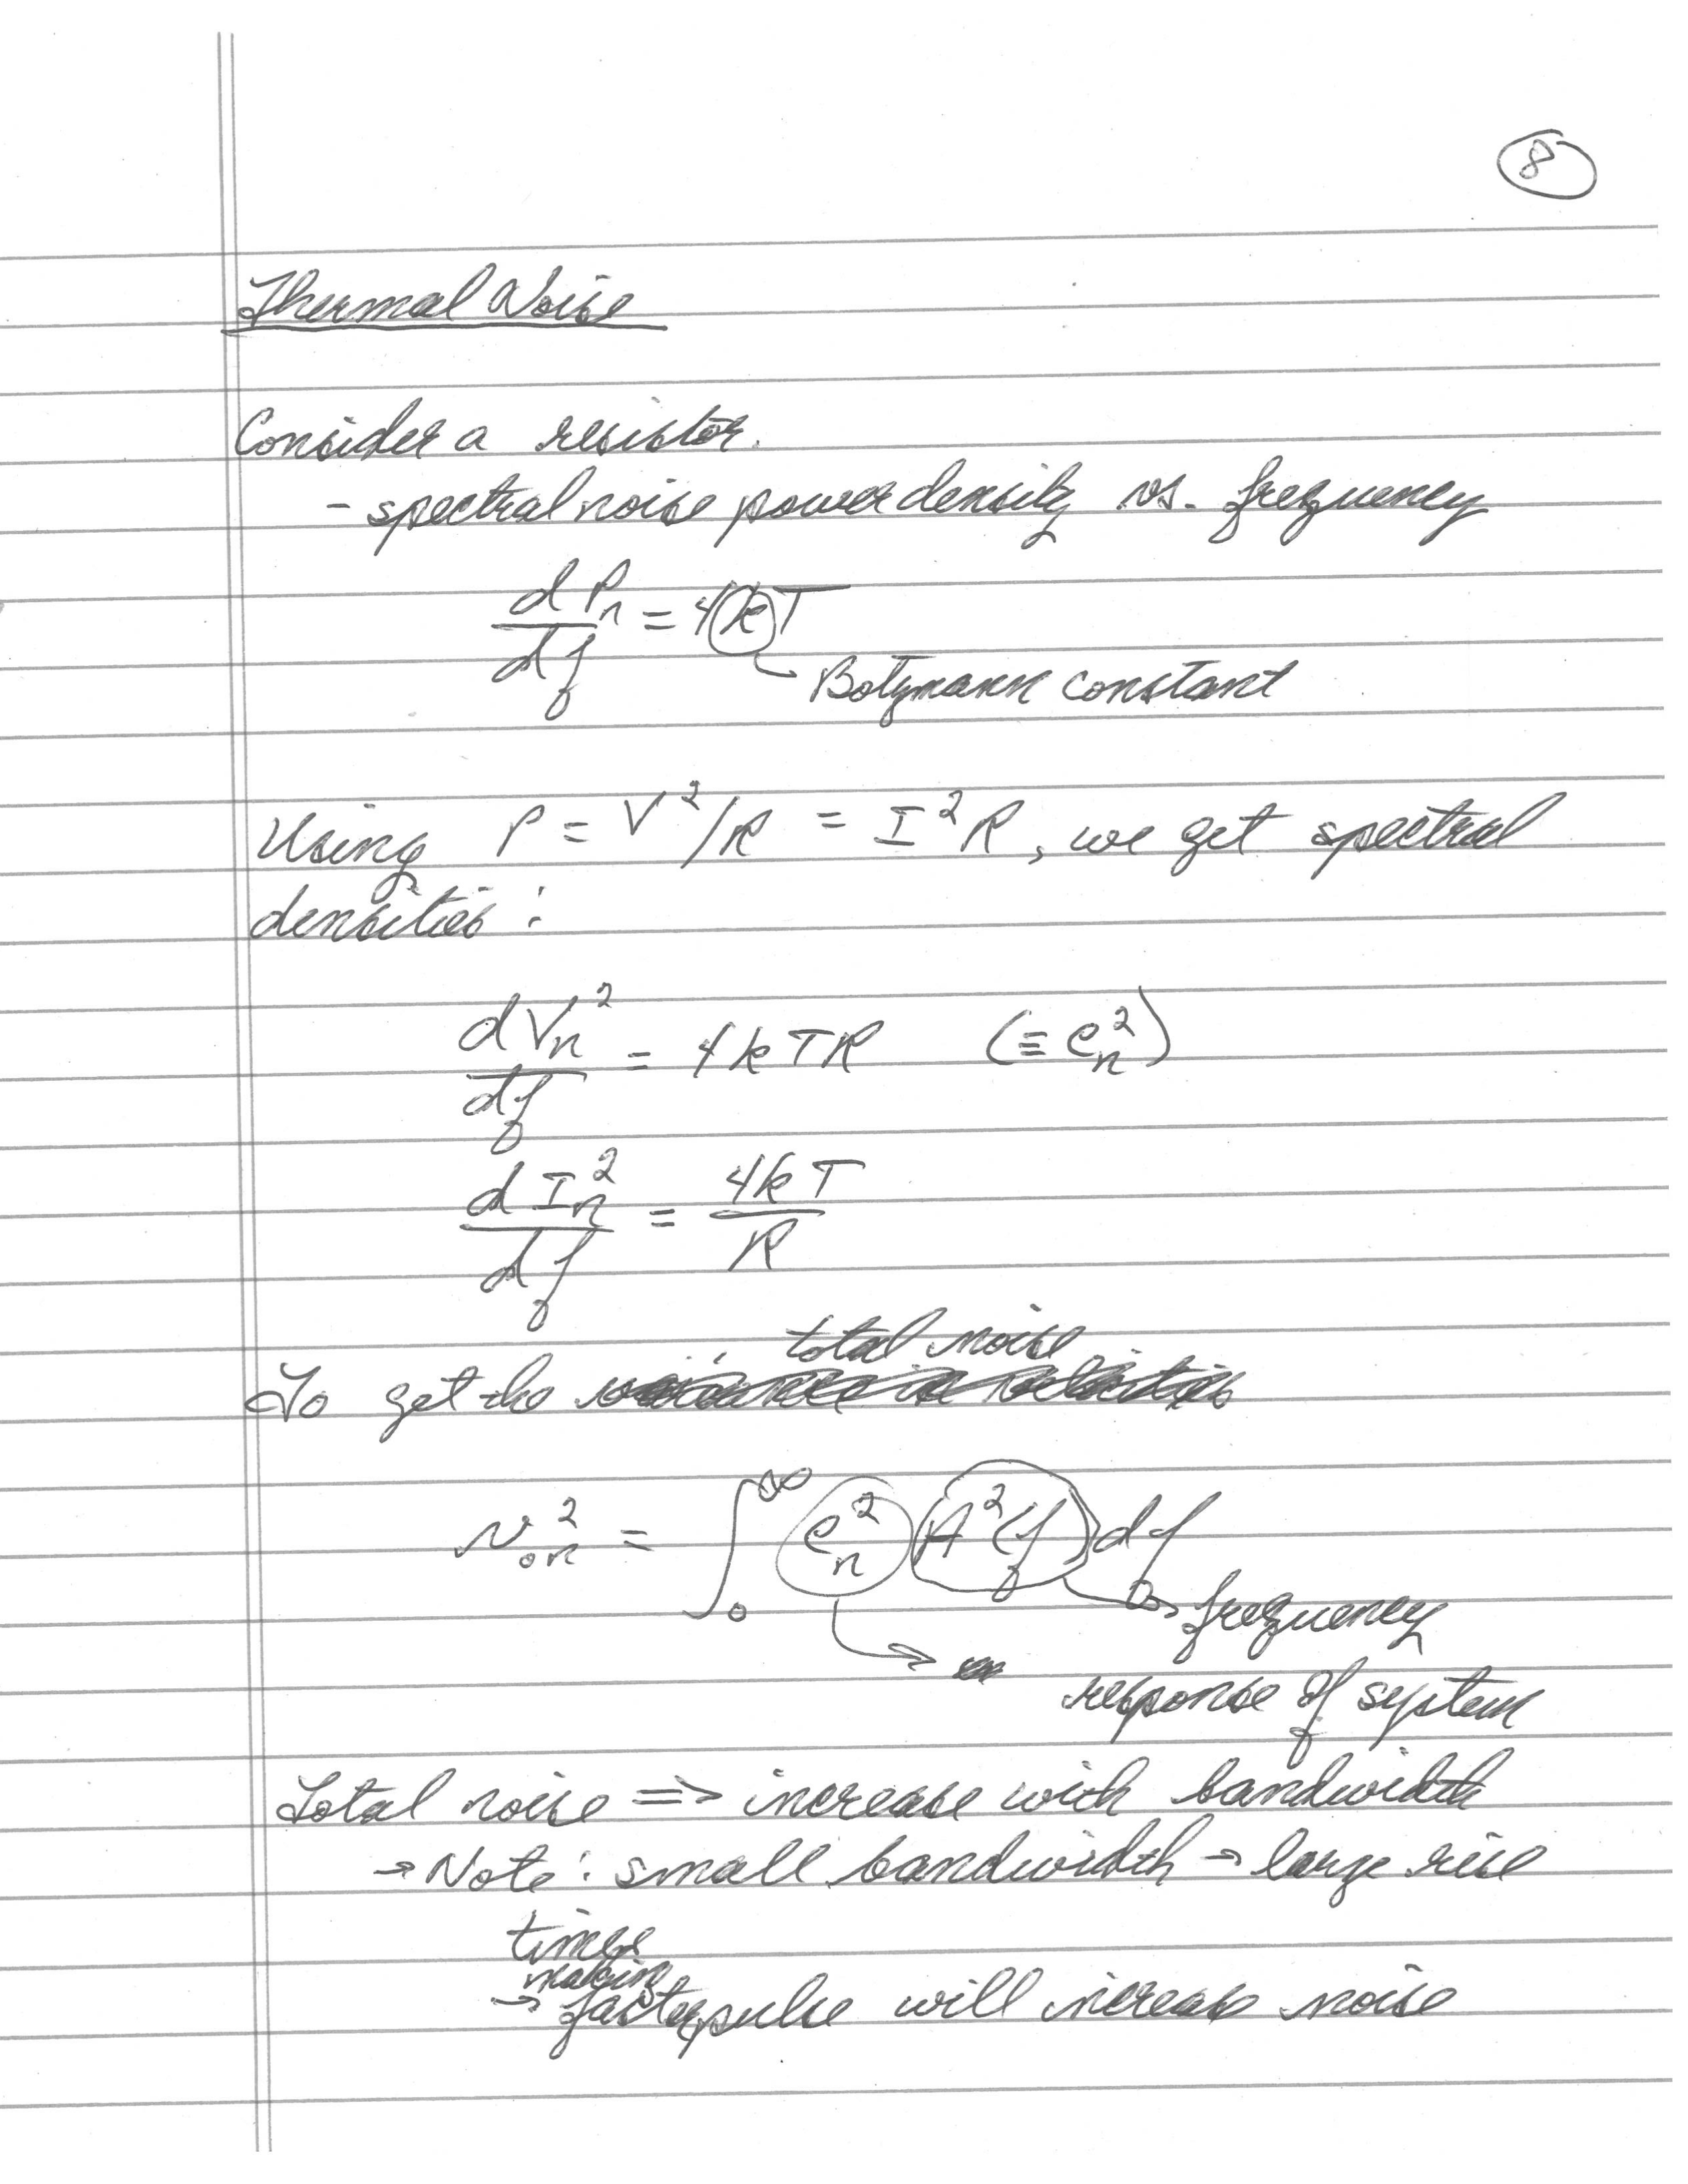 8
Thermal Noise
Consider a resistor.
- spectral noise power density vs. frequency
dPn/df = 4kT
Botzmann constant
Using P = V²/R = I²R, we get spectral
densities:
dVn²/df = 4kTR (≡ en²)
dIn²/df = 4kT/R
total noise
To get the
von² = ∫₀^∞ en² A²(f) df
→ frequency
response of system
Total noise => increase with bandwidth
→ Note: small bandwidth → large rise
times
making
→ faster pulse will increase noise